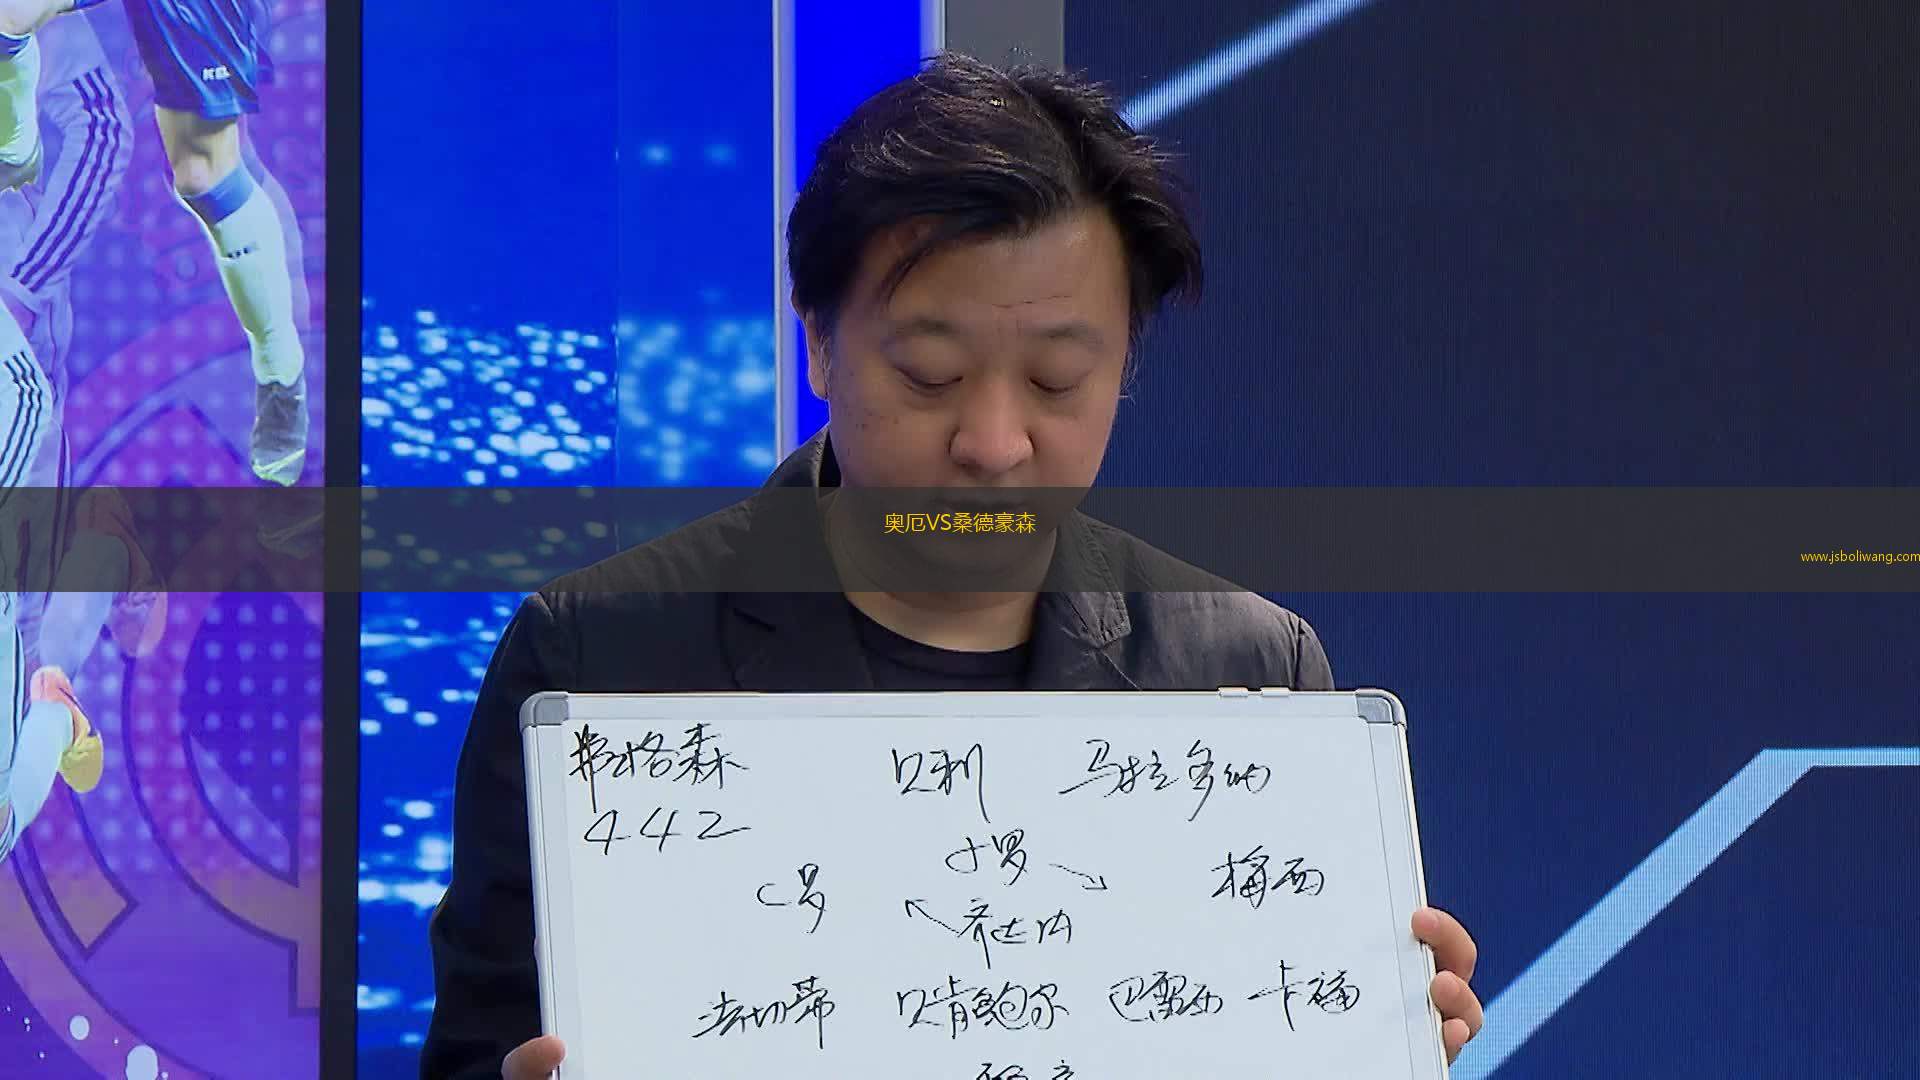 奥厄VS桑德豪森
www.jsboliwang.com
弗格森 贝利 马拉多纳
442
小罗
C罗 梅西
齐达内
法切蒂 贝肯鲍尔 巴雷西 卡福